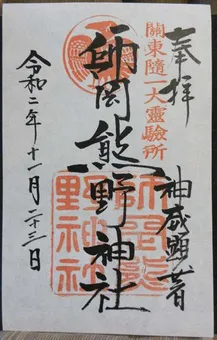 奉拝
神威顕著
關東随一大靈驗所
師岡熊野神社
師岡熊
野神社
令和二年十一月二十三日